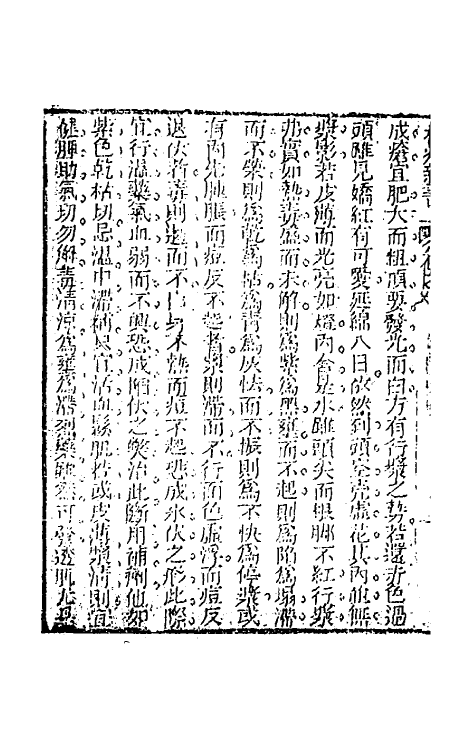 成瘡宜肥大而粗頂要發光而白方有行漿之勢若還赤色過
頭雖見嬌紅有可愛延綿八日依然到頭空壳虛花其內雖無
漿影若皮薄而光亮如燈內含是水雖頭尖而無脚不紅行漿
弗實如熱毒盛而未解則爲紫爲黑壅而不起則爲陷爲塌滯
而不榮則爲乾爲枯爲青爲灰怯而不振則爲不快爲停漿或
有肉先腫脹而痘反不起者氣則滯而不行面色虛浮而痘反
退伏者毒則過而不出身不熱而痘不起恐成氷伏之形此際
宜行溫藥氣血弱而不興恐成陷伏之災治此斷用補劑他如
紫色乾枯切忌溫中滯補只宜活血鬆肌若或皮薄漿清則宜
健脾助氣切勿解毒清涼爲壅爲滯剋藥雖可發透肌尤